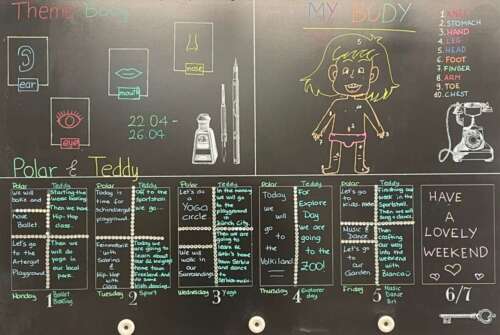 Theme: Body
ear
mouth
nose
eye
22.04 -
26.04
MY BODY
1. KNEE
2. STOMACH
3. HAND
4. LEG
5. HEAD
6. FOOT
7. FINGER
8. ARM
9. TOE
10. CHEST
Polar & Teddy
Polar
We will
bake and
have
Ballet
Let's go
to the
Playground
Teddy
Starting the
week
Then we have
Hip-Hop
class
Then we
will do
yoga in
our local
park
Monday
1
Ballet
Baking
Polar
Today is
time for
playground
with
Sabrina
Hip Hop
with
Clara
Teddy
Off to the
Sportstation
we go...
Today we
are going to
learn about
our
home town
and
do
Sport
Tuesday
2
Polar
Let's do
a
YOGA
circle
We will
walk in
our
Surroundings
Teddy
In the morning
we will go
to the
playground
in the
City
Then we are
going to
learn
home town
Serbia
and dance
to
Serbian music
Wednesday
3
Yoga
Polar
Today
we
will
go to
the
Volksland
Teddy
For
Explore
Day
we are
going
to the
ZOO!
Thursday
4
Explorer
day
Polar
Let's go
to
Music &
Dance
Let's go
to our
Garden
Teddy
Finishing our
week in the
Sportstation
Then we will
sing & dance
Then
crafting
our way
into the
weekend
with
Bianca
Friday
5
Music
Dance
Art
HAVE
A
LOVELY
WEEKEND
6/7